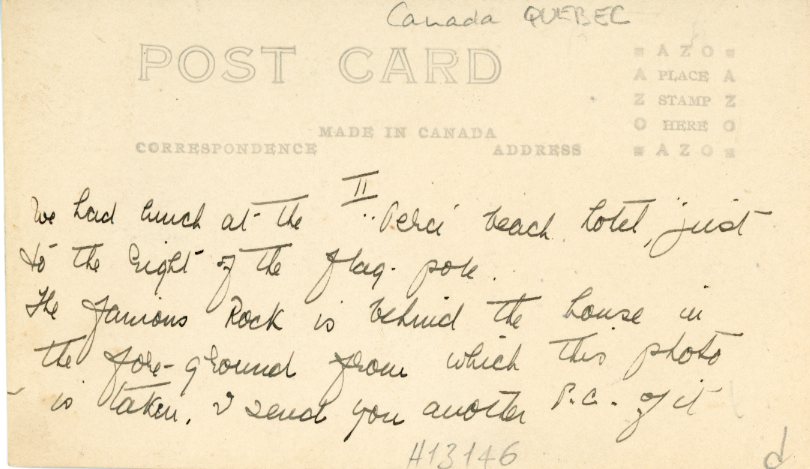 Canada QUEBEC
POST CARD
AZO
A PLACE A
Z STAMP Z
O HERE O
AZO
MADE IN CANADA
CORRESPONDENCE ADDRESS
II
We had lunch at the "Percé beach hotel, just
to the right of the flag-pole.
The famous Rock is behind the house in
the fore-ground from which this photo
is taken. I send you another P.C. of it
H13146
d